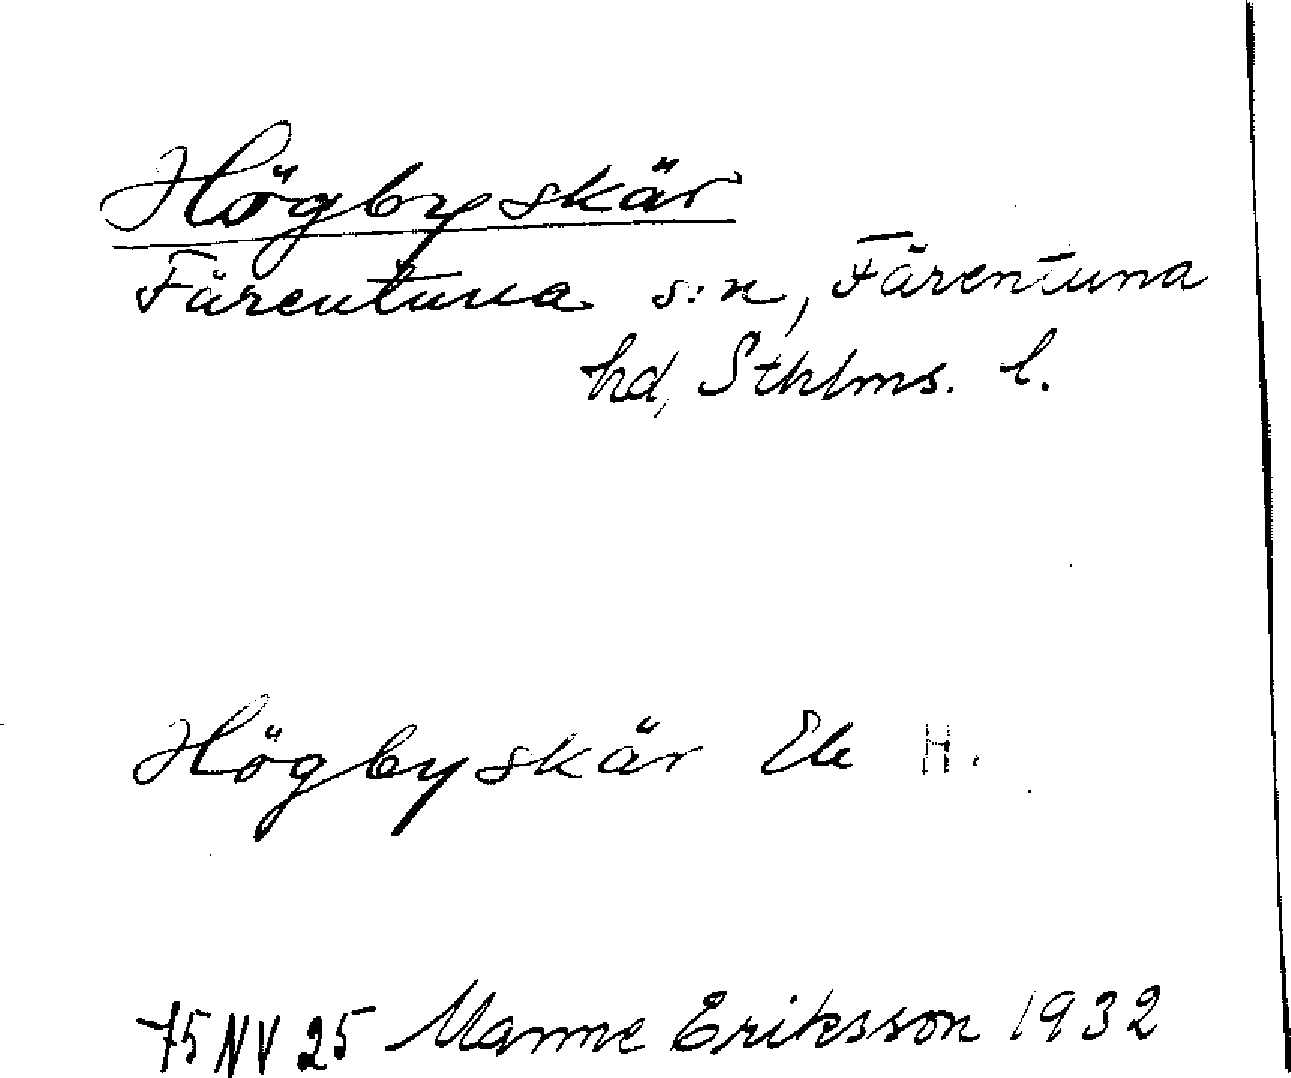 Högbyskär
Färentuna s:n, Färentuna
hd, Sthlms. l.
Högbyskär Ek H.
75 NV 25 Manne Eriksson 1932